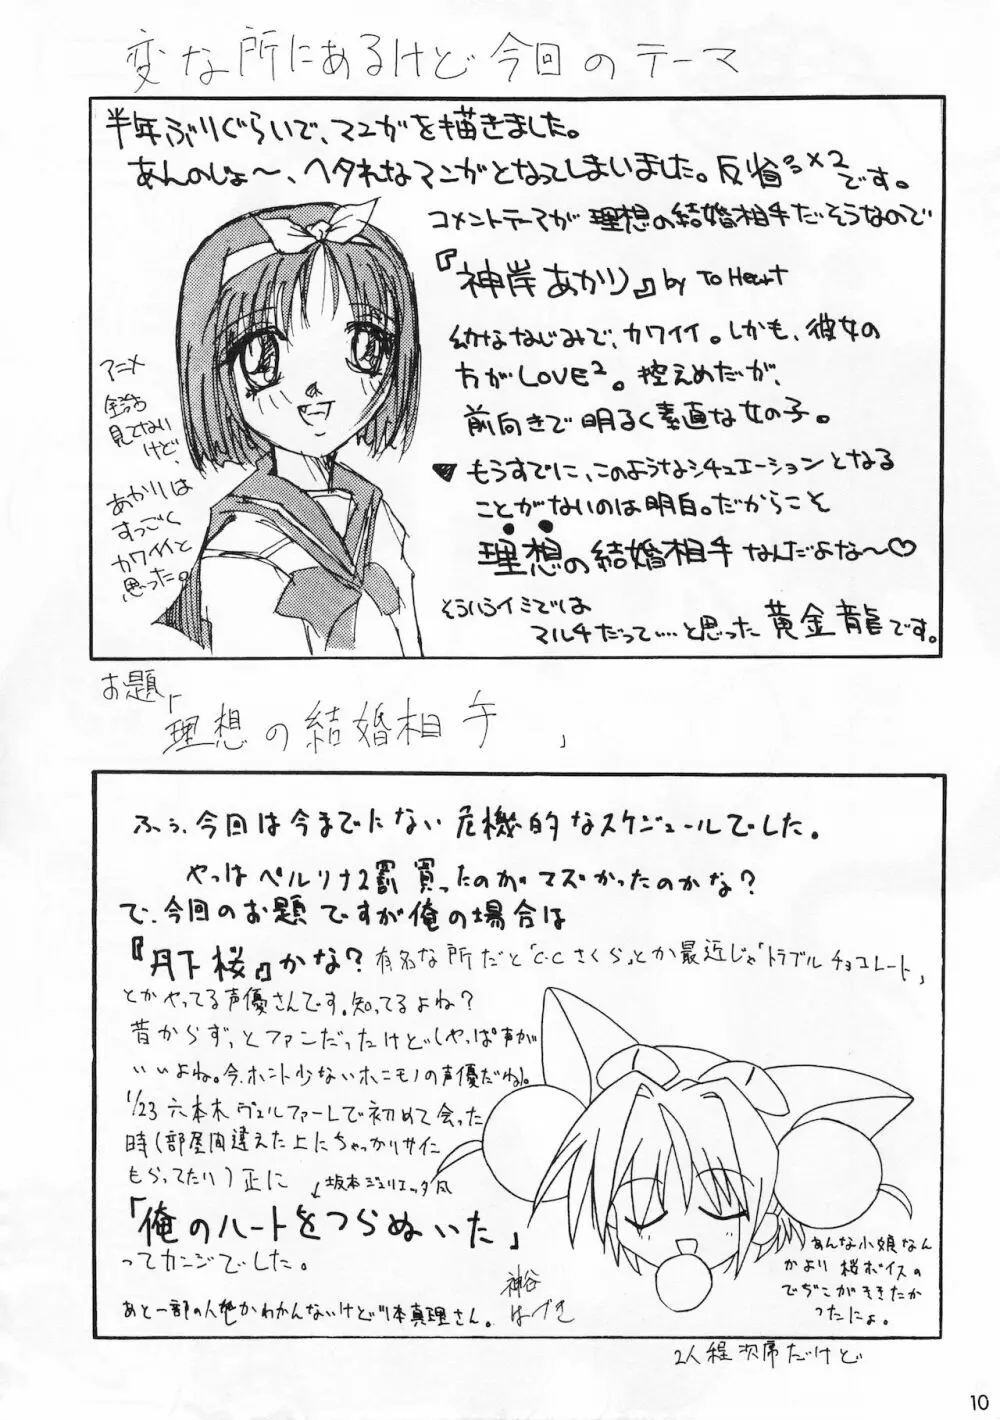 変な所にあるけど今回のテーマ
半年ぶりぐらいで、マンガを描きました。
あんのじょ〜、ヘタれなマンガとなってしまいました。反省×2です。
コメントテーマが理想の結婚相手だそうなので
『神岸あかり』by To Heart
幼ななじみで、カワイイ。しかも、彼女の
方がLOVE²。控えめだが、
前向きで明るく素直な女の子。
♥もうすでに、このようなシチュエーションとなる
ことがないのは明白。だからこそ
理想の結婚相手なんだよな〜♡
そういうイミでは
マルチだって…と思った黄金龍です。
アニメ
全話
見てない
けど、
あかりは
すっごく
カワイイと
思った。
お題「
理想の結婚相手」
ふぅ、今回は今までにない危機的なスケジュールでした。
やっぱペルソナ2罰買ったのがマズかったのかな?
で、今回のお題ですが俺の場合は
『丹下桜』かな?有名な所だと「C・Cさくら」とか最近じゃ「トラブルチョコレート」
とかやってる声優さんです。知ってるよね?
昔からずっとファンだったけど(やっぱ声が
いいよね。今、ホント少ないホンモノの声優だね)。
1/23 六本木ヴェルファーレで初めて会った
時(部屋間違えた上にちゃっかりサイン
もらってたり)正に
↙坂本ジュリエッタ風
「俺のハートをつらぬいた」
ってカンジでした。
あと一部の人他かわかんないけど川本真理さん。
神谷
はづき
あんな小娘なん
かより桜ボイスの
でじこがききたか
ったにょ。
2人程次席だけど
10